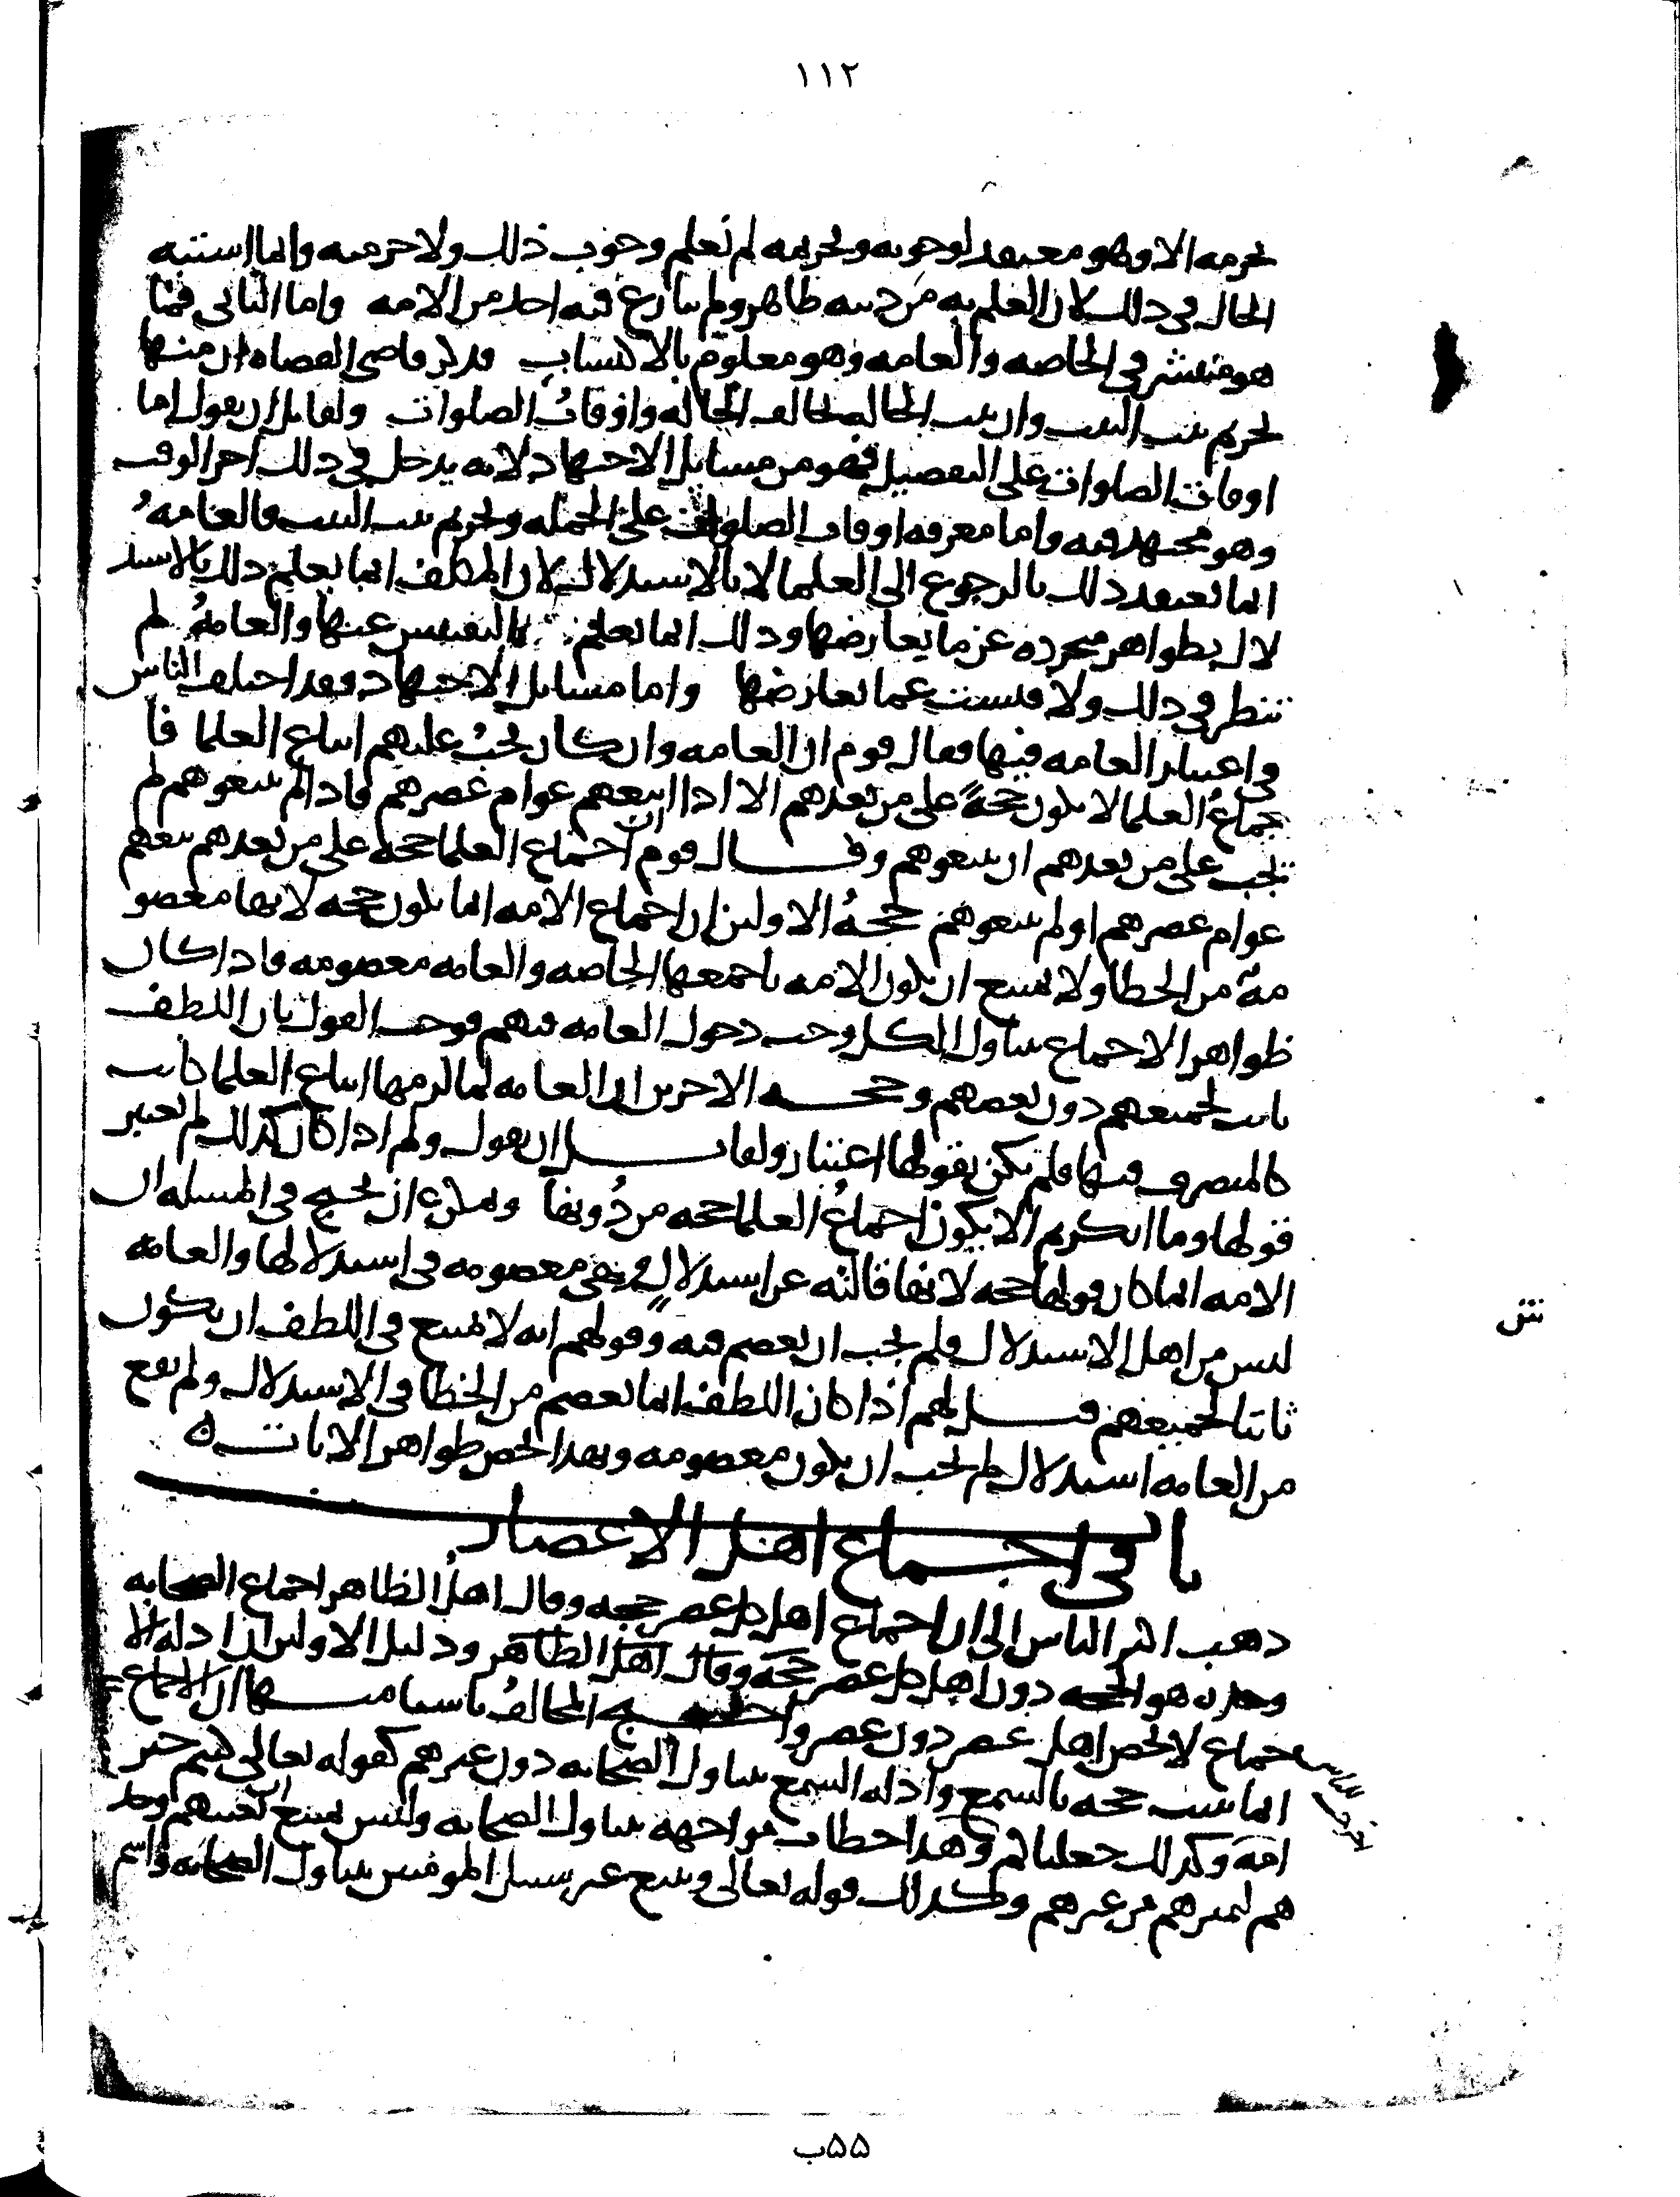 ١١٢
تحرمه الا وهو معتقد لوجوبه وتحريمه لم نعلم وجوب ذلك ولا حرمته وانما استبه
الحال في ذلك لان العلم به من دينه ظاهر ولم ينازع فيه احد من الامه واما الثاني فمما
هو منتشر في الخاصه والعامه وهو معلوم بالاكتساب فذكر قاضي القضاه ان منها
تحريم بنت البنت وان بنت الخاله تخالف الخاله واوقات الصلوات ولقايل ان يقول اما
اوقات الصلوات على التفصيل فهو من مسايل الاجتهاد لانه يدخل في ذلك اخر الوقت
وهو مجتهد فيه واما معرفه اوقات الصلوات على الجمله وتحريم بنت البنت فالعامه
انما تعتقد ذلك بالرجوع الى العلما لا بالاستدلال لان المكلف انما يعلم ذلك بالاستد
لال بظواهر مجرده عن ما يعارضها وذلك انما يعلم بالتفتيش عنها والعامه لم
تنظر في ذلك ولا فتشت عما يعارضها واما مسايل الاجتهاد فقد اختلف الناس
في اعتبار العامه فيها فقال قوم ان العامه وان كان يجب عليهم اتباع العلما فا
جماع العلما لا يكون حجة على من بعدهم الا اذا اتبعهم عوام عصرهم فاذا لم يتبعوهم لم
تجب على من بعدهم ان يتبعوهم وقال قوم ان اجماع العلما حجه على من بعدهم تبعهم
عوام عصرهم او لم يتبعوهم حجه الاولين ان اجماع الامه انما يكون حجه لانها معصو
مه من الخطا ولا يمتنع ان تكون الامه باجمعها الخاصه والعامه معصومه فاذا كان
ظواهر الاجماع يتناول الكل وجب دخول العامه فيهم فوجب القول بان اللطف
ثابت لجميعهم دون بعضهم وحجه الاخرين ان العامه لما لزمها اتباع العلما كانت
كالمتصرف فيها فلم يكن بقولها اعتبار ولقايل ان يقول ولم اذا كان كذلك لم يعتبر
قولها وما انكرتم الا يكون اجماع العلما حجه من دونها ويمكن ان يحتج في المسله ان
الامه انما كان قولها حجه لانها قالته عن استدلال فهي معصومه في استدلالها والعامه
ليس من اهل الاستدلال فلم يجب ان تعصم فيه وقولهم انه لا يمتنع في اللطف ان يكون
ثابتا لجميعهم قيل لهم اذا كان اللطف انما يعصم من الخطا في الاستدلال ولم يقع
من العامه استدلال لم يجب ان يكون معصومه وبهذا نخص ظواهر الايات ه
باب في اجماع اهل الاعصار
ذهب اكثر الناس الى ان اجماع اهل كل عصر حجه وقال اهل الظاهر اجماع الصحابه
وحده هو الحجه دون اهل كل عصر حجه وقال اهل الظاهر ودليل الاولين ان ادله الا
جماع لا تخص اهل عصر دون عصر واحتج المخالف باشيا منها ان الاجماع
انما يثبت حجه بالسمع وادله السمع يتناول الصحابه دون غيرهم كقوله تعالى كنتم خير
امه وكذلك جعلناكم وهذا خطاب مواجهه يتناول الصحابه وليس يمتنع ان نخصهم وحد
هم لتميزهم من غيرهم وكذلك قوله تعالى ويتبع غير سبيل المومنين يتناول الصحابه واسم
٥٥ب